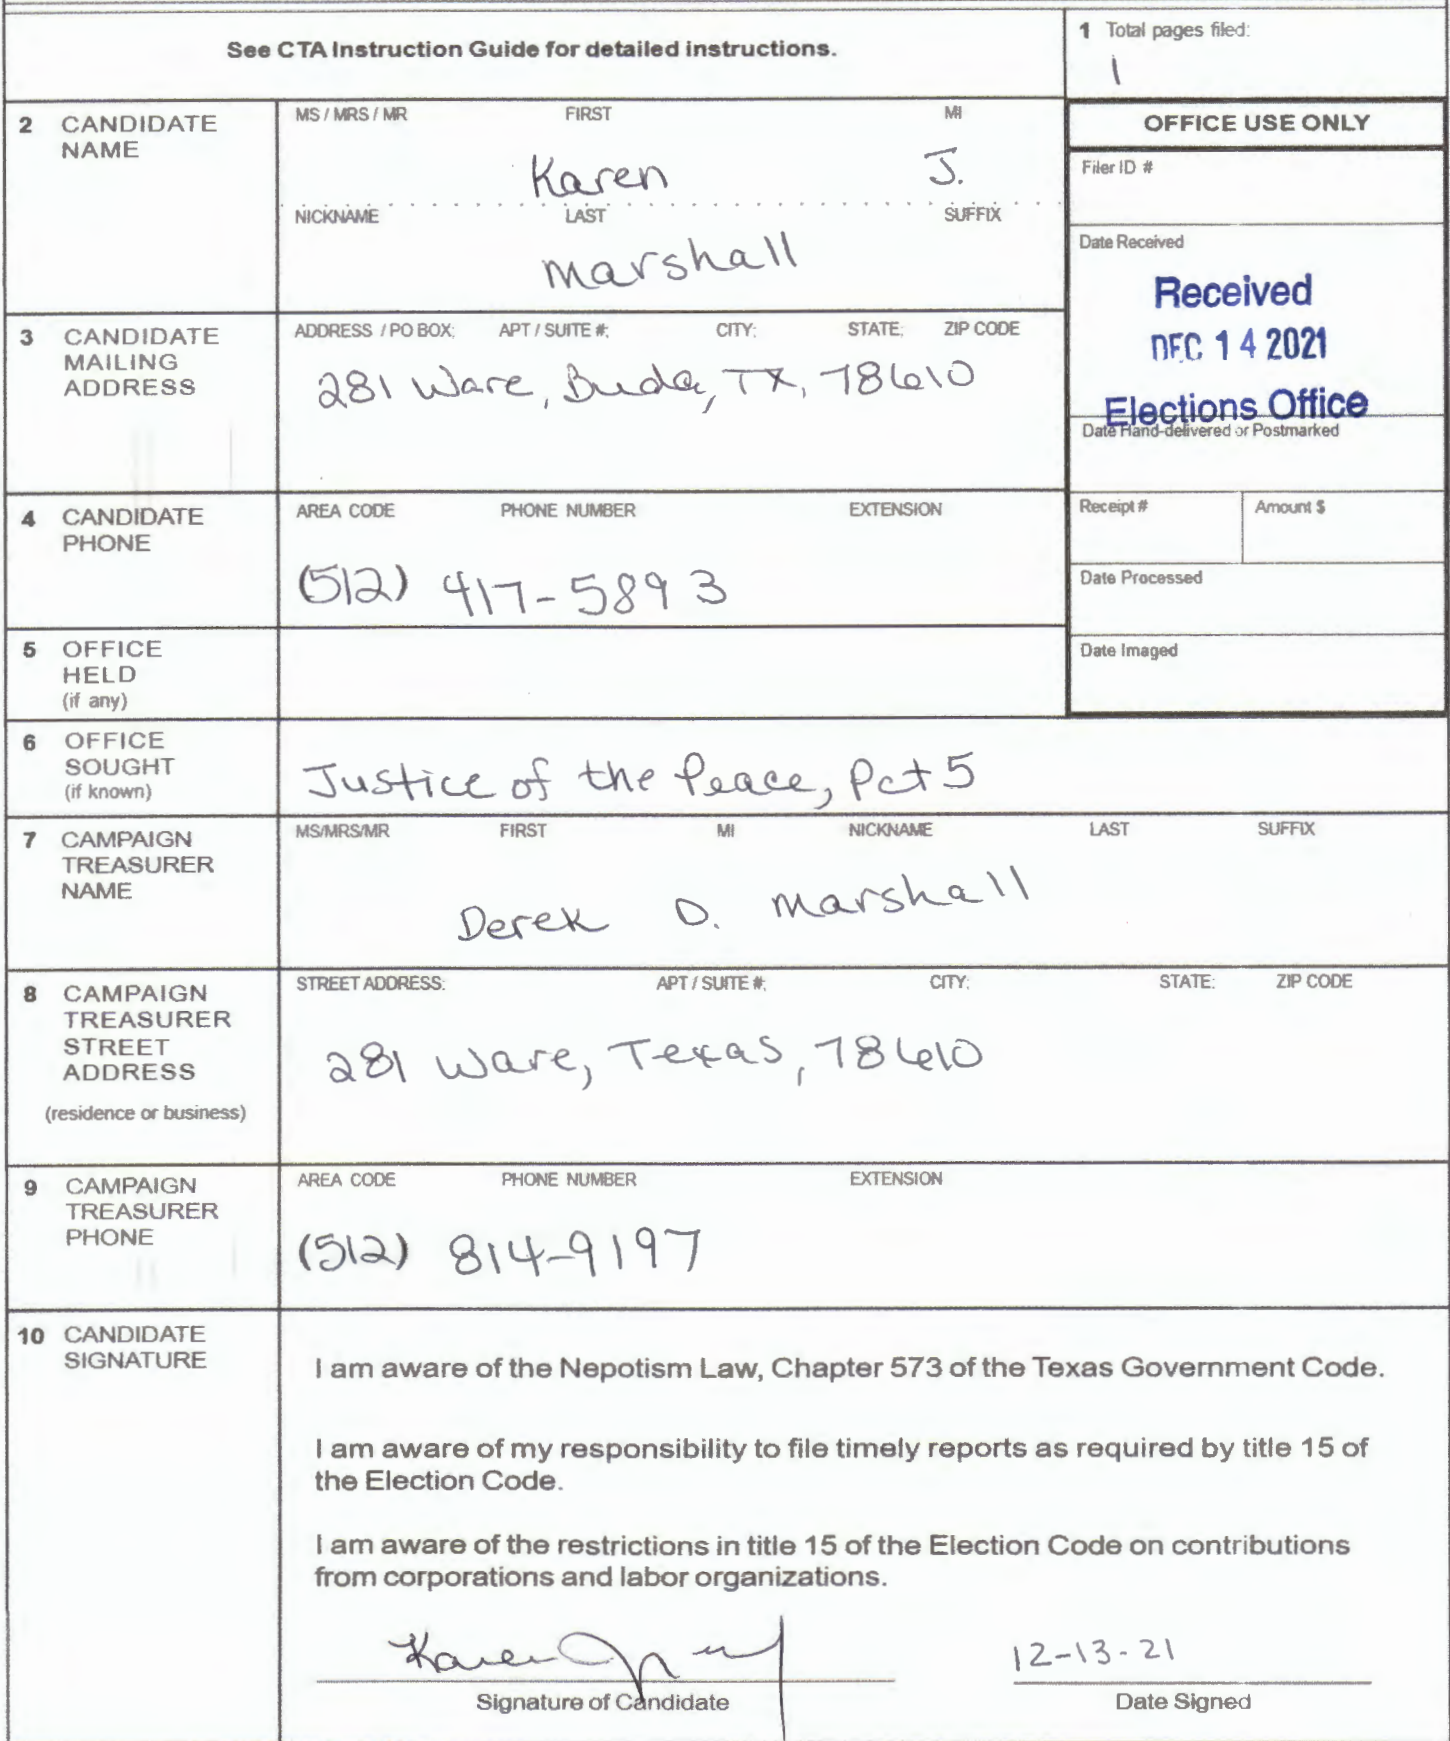 See CTA Instruction Guide for detailed instructions.
1 Total pages filed:
1
2 CANDIDATE NAME
MS / MRS / MR FIRST MI
Karen J.
NICKNAME LAST SUFFIX
Marshall
OFFICE USE ONLY
Filer ID #
Date Received
Received
DEC 14 2021
Elections Office
Date Hand-delivered or Postmarked
Receipt # Amount $
Date Processed
Date Imaged
3 CANDIDATE MAILING ADDRESS
ADDRESS / PO BOX; APT / SUITE #; CITY; STATE; ZIP CODE
281 Ware, Buda, TX, 78610
4 CANDIDATE PHONE
AREA CODE PHONE NUMBER EXTENSION
(512) 417-5893
5 OFFICE HELD
(if any)
6 OFFICE SOUGHT
(if known)
Justice of the Peace, Pct 5
7 CAMPAIGN TREASURER NAME
MS/MRS/MR FIRST MI NICKNAME LAST SUFFIX
Derek D. Marshall
8 CAMPAIGN TREASURER STREET ADDRESS
(residence or business)
STREET ADDRESS; APT / SUITE #; CITY; STATE; ZIP CODE
281 Ware, Texas, 78610
9 CAMPAIGN TREASURER PHONE
AREA CODE PHONE NUMBER EXTENSION
(512) 814-9197
10 CANDIDATE SIGNATURE
I am aware of the Nepotism Law, Chapter 573 of the Texas Government Code.
I am aware of my responsibility to file timely reports as required by title 15 of
the Election Code.
I am aware of the restrictions in title 15 of the Election Code on contributions
from corporations and labor organizations.
Karen J
12-13-21
Signature of Candidate Date Signed